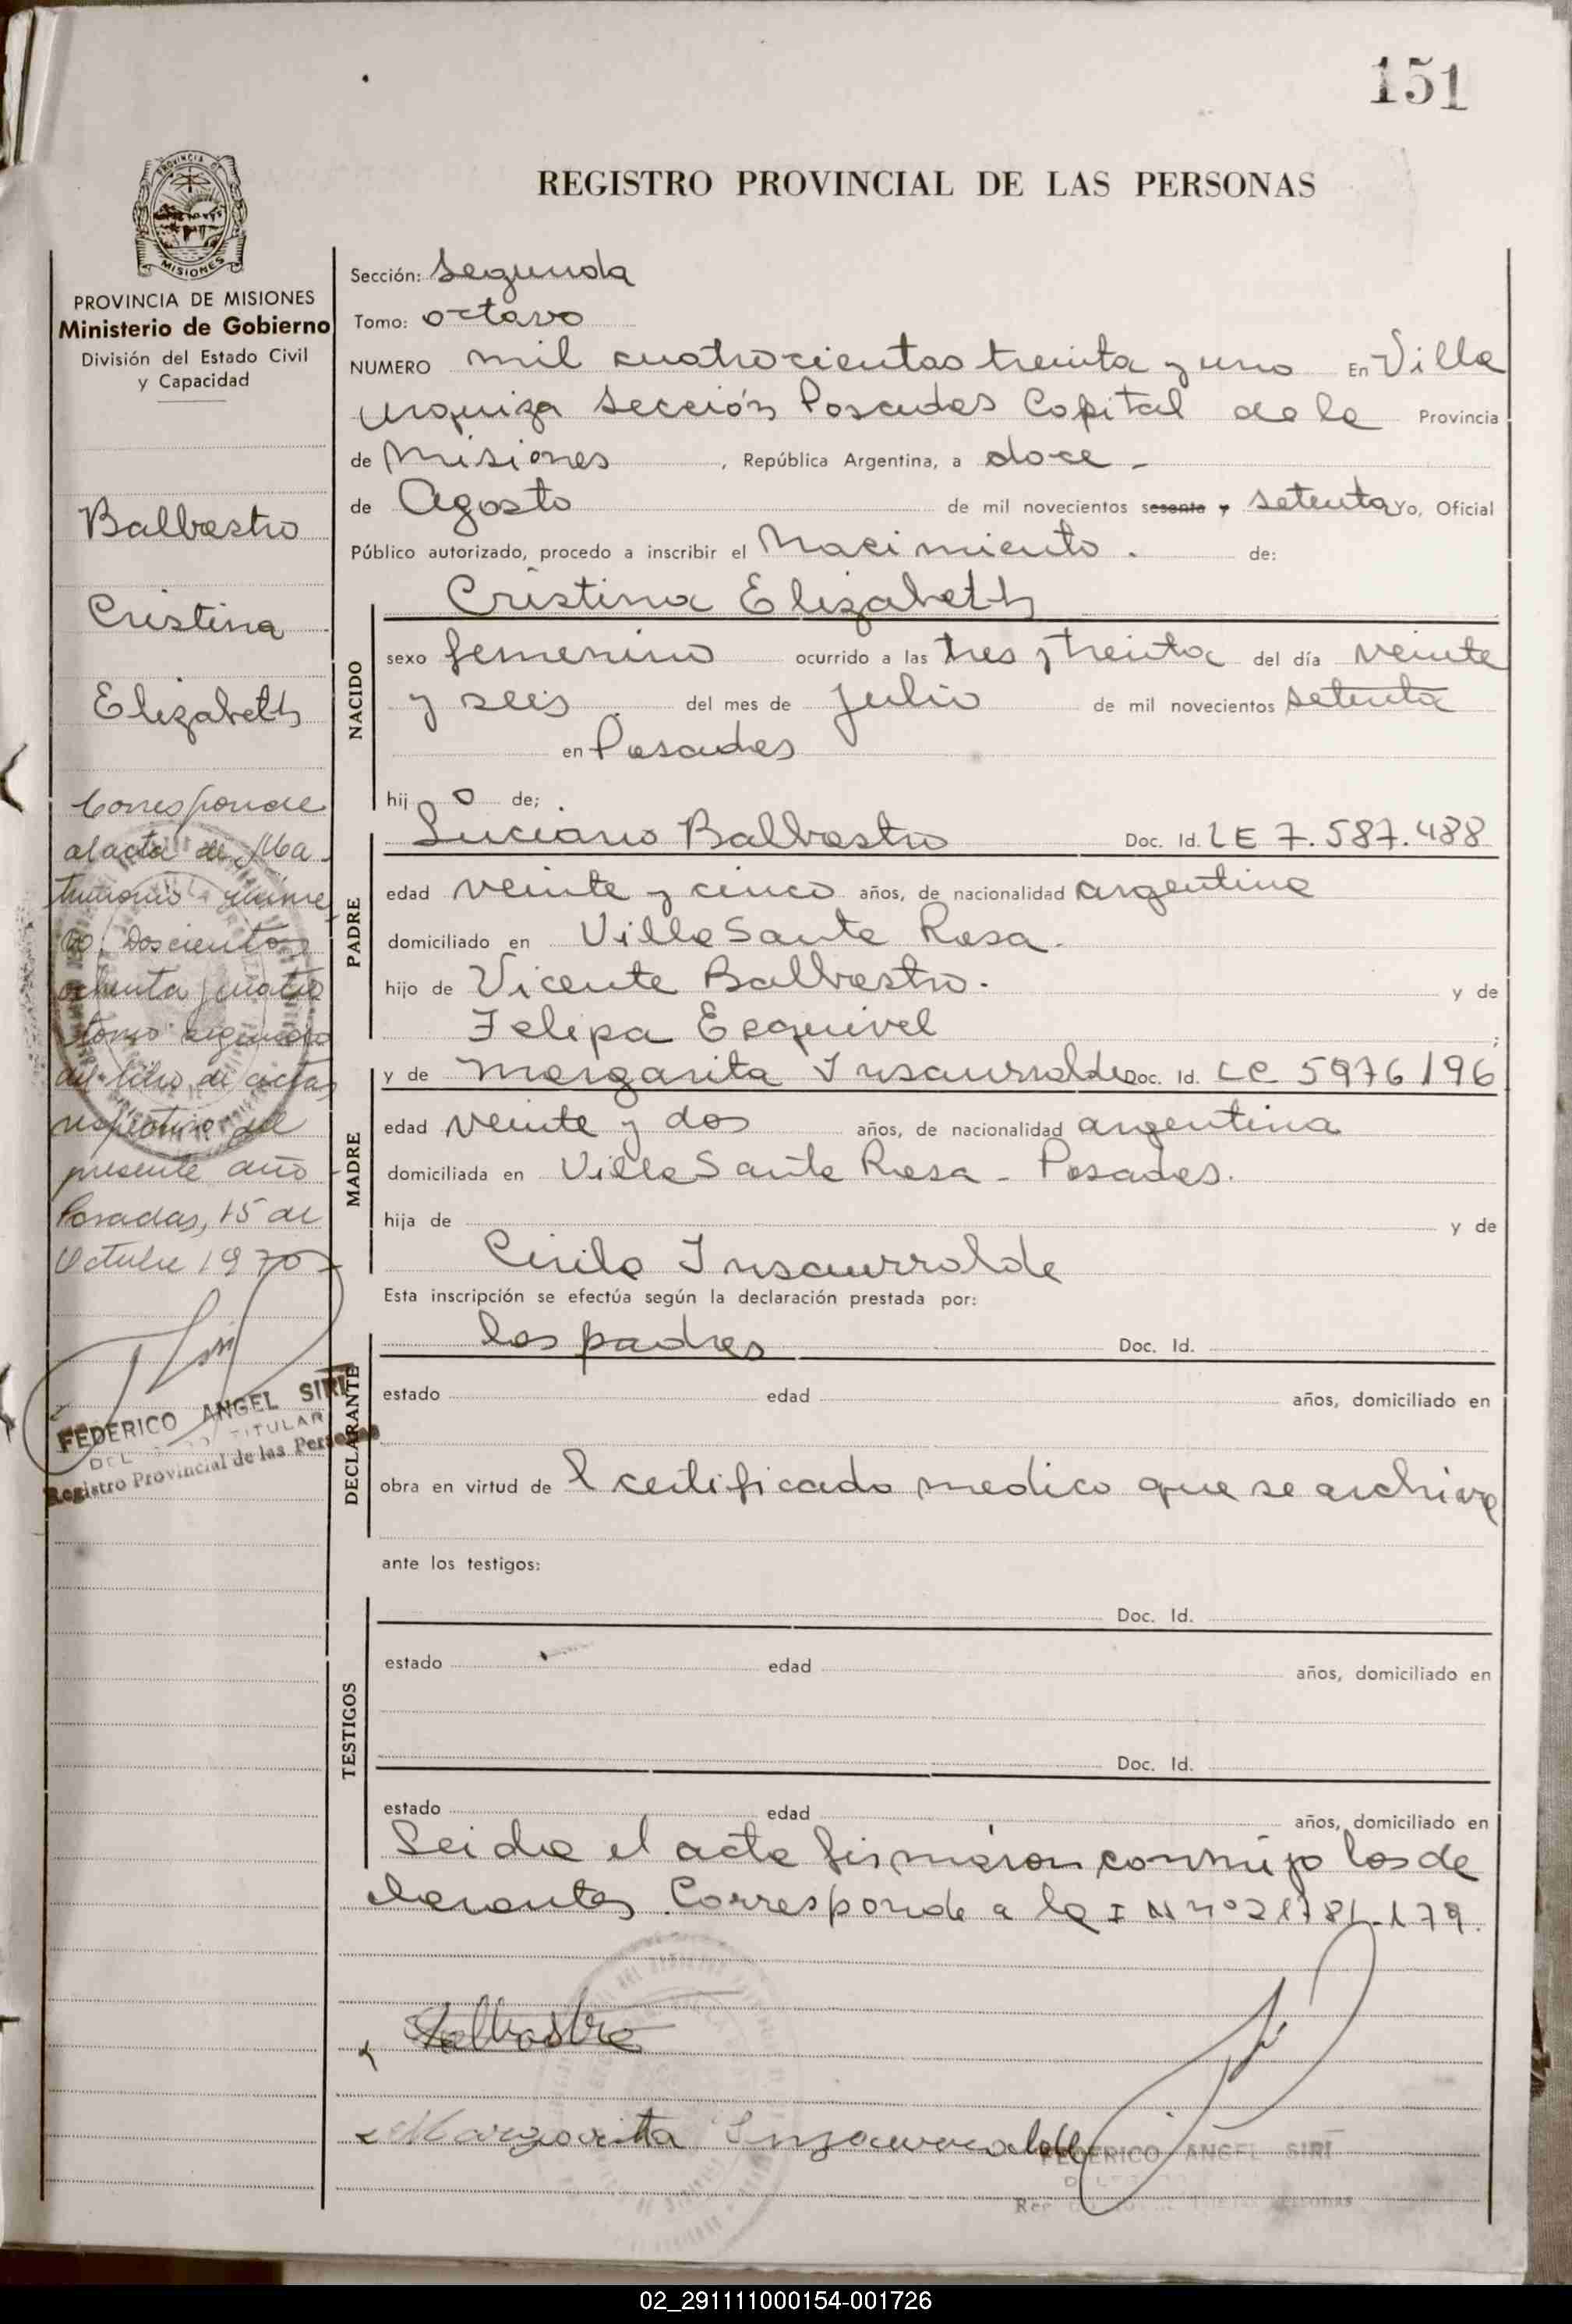 151
REGISTRO PROVINCIAL DE LAS PERSONAS
PROVINCIA DE MISIONES
Ministerio de Gobierno
División del Estado Civil
y Capacidad
Balbastro
Cristina
Elizabeth
Corresponde
al acta de Ma-
trimonio núme-
ro Doscientos
ochenta y cuatro
tomo segundo
del libro de actas
respectivo del
presente año
Posadas, 15 de
Octubre 1970
FEDERICO ANGEL SIRI
TITULAR
Registro Provincial de las Personas
Sección: Segunda
Tomo: octavo
NUMERO mil cuatrocientos treinta y uno En Villa
Urquiza Sección Posadas Capital de la Provincia
de Misiones , República Argentina, a doce -
de Agosto de mil novecientos sesenta y setenta Yo, Oficial
Público autorizado, procedo a inscribir el Nacimiento . de:
Cristina Elizabeth
NACIDO
sexo femenino ocurrido a las tres y treinta del día veinte
y seis del mes de Julio de mil novecientos setenta
en Posadas
hij o de;
PADRE
Luciano Balbastro Doc. Id. LE 7.587.488
edad veinte y cinco años, de nacionalidad argentina
domiciliado en Villa Santa Rosa.
hijo de Vicente Balbastro. y de
Felipa Esquivel ;
MADRE
y de Margarita Insaurralde Doc. Id. LC 5976196
edad veinte y dos años, de nacionalidad argentina
domiciliada en Villa Santa Rosa - Posadas.
hija de y de
Cirila Insaurralde
Esta inscripción se efectúa según la declaración prestada por:
DECLARANTE
los padres Doc. Id.
estado edad años, domiciliado en
obra en virtud de l certificado medico que se archiva
ante los testigos:
TESTIGOS
Doc. Id.
estado edad años, domiciliado en
Doc. Id.
estado edad años, domiciliado en
Leida el acta firmaron conmigo los de
clarantes. Corresponde a la I N nº
Balbastro
Margarita Insaurralde
FEDERICO ANGEL SIRI
02_291111000154-001726